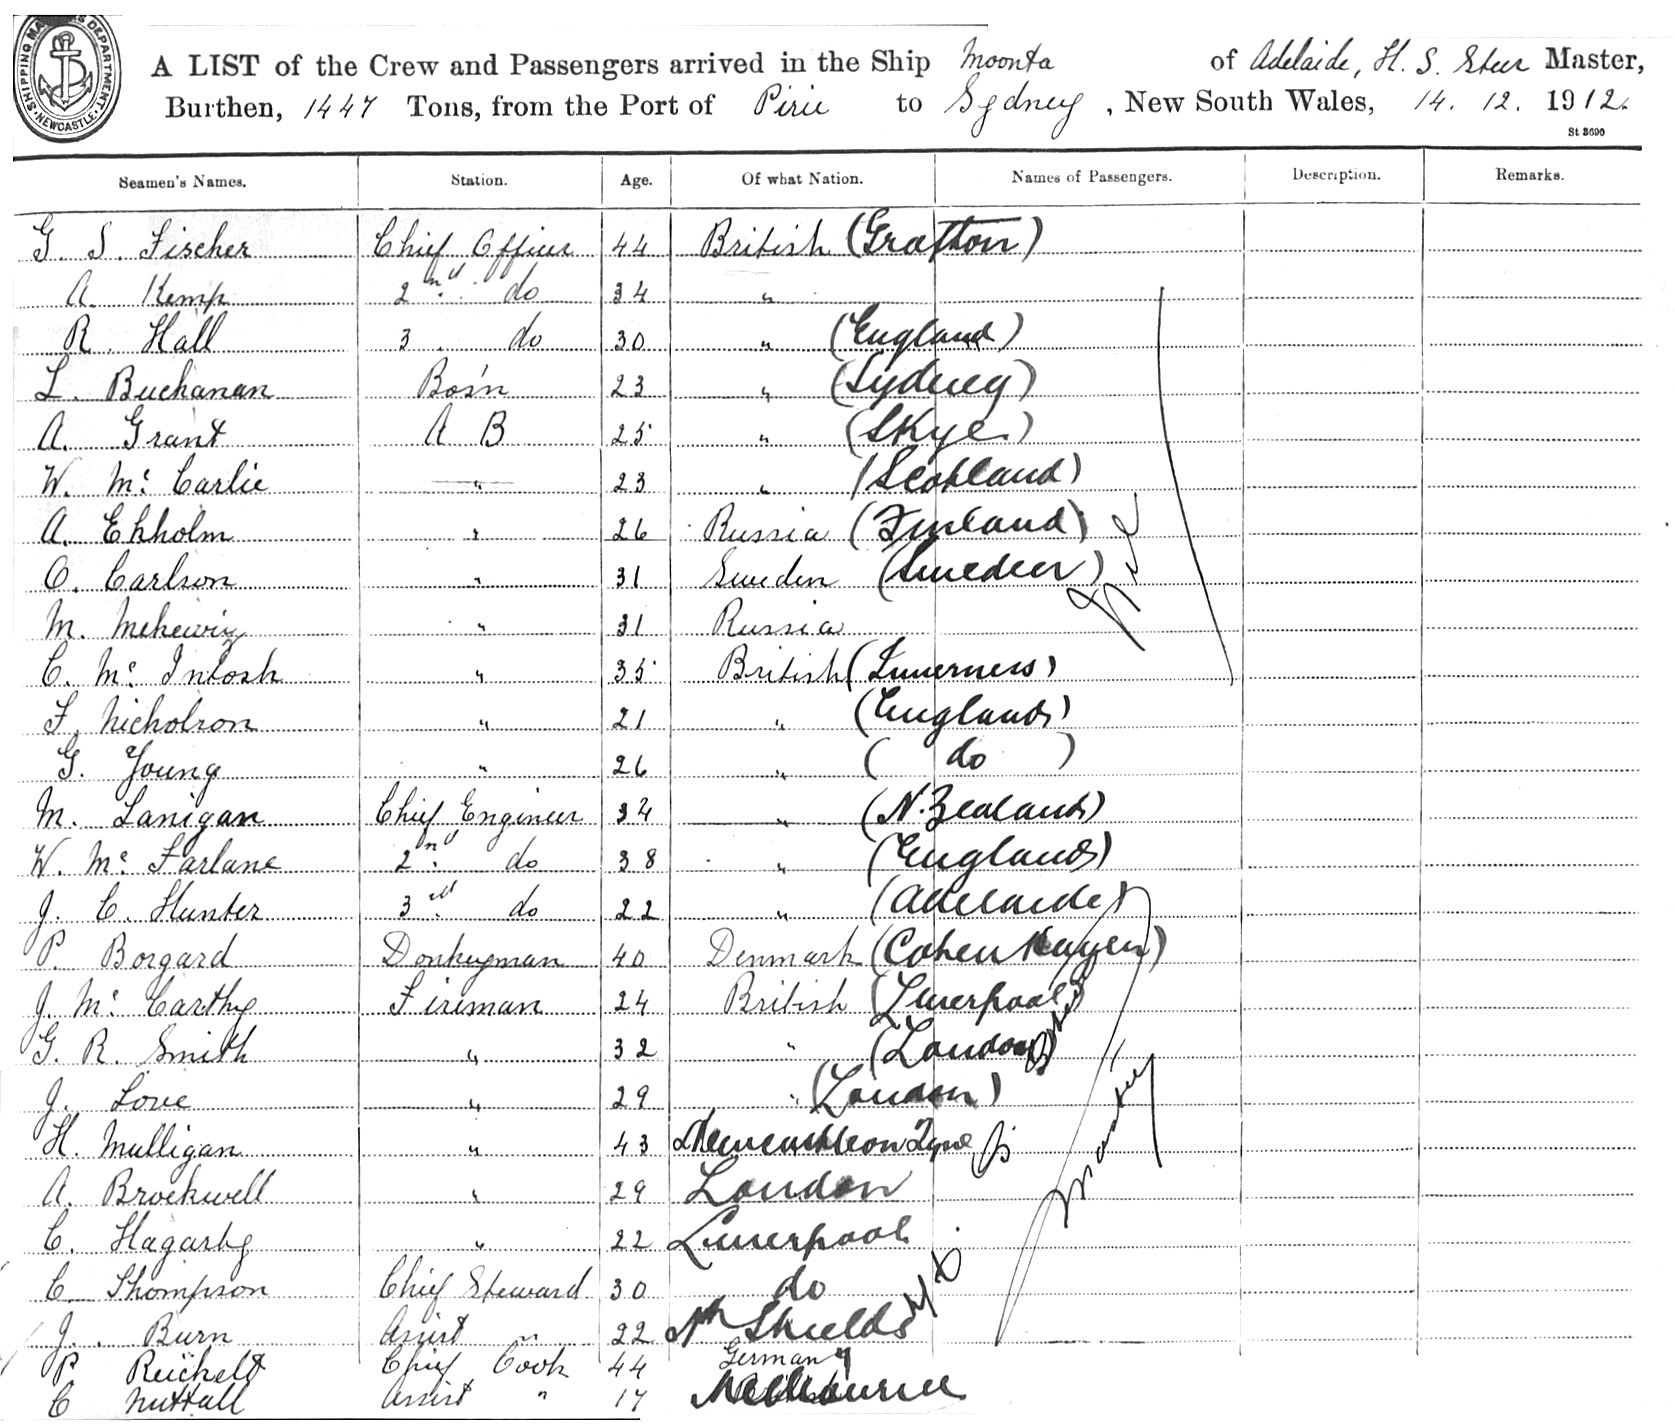 SHIPPING MASTERS DEPARTMENT NEWCASTLE
A LIST of the Crew and Passengers arrived in the Ship Moonta of Adelaide, H. S. Steer Master,
Burthen, 1447 Tons, from the Port of Pirie to Sydney, New South Wales, 14. 12. 1912.
St 3690
Seamen's Names. Station. Age. Of what Nation. Names of Passengers. Description. Remarks.
G. S. Fischer Chief Officer 44 British (Grafton)
A. Kemp 2nd do 34 "
R. Hall 3 do 30 " (England)
L. Buchanan Bos'n 23 " (Sydney)
A. Grant A B 25 " (Skye)
W. Mc Carlie " 23 " (Scotland)
A. Ekholm " 26 Russia (Finland)
O. Carlson " 31 Sweden (Sweden)
M. Mehewiz " 31 Russia
C. Mc Intosh " 35 British (Inverness)
F. Nicholson " 21 " (England)
G. Young " 26 " ( do )
M. Lanigan Chief Engineer 34 " (N. Zealand)
W. Mc Farlane 2nd do 38 " (England)
J. C. Hunter 3rd do 22 " (Adelaide)
P. Borgard Donkeyman 40 Denmark (Cohen Hagen)
J. Mc Carthy Fireman 24 British (Liverpool)
G. R. Smith " 32 " (London)
J. Love " 29 " (London)
H. Mulligan " 43 Newcastle on Tyne
A. Brockwell " 29 London
C. Hagarty " 22 Liverpool
C. Thompson Chief Steward 30 do
J. Burn Assist " 22 Nth Shields
P. Reichelt Chief Cook 44 Germany
C Nuttall Assist " 17 Melbourne